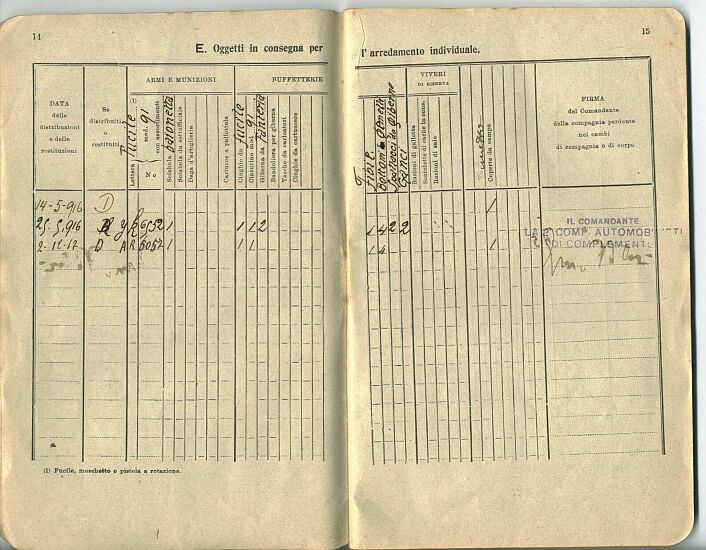 14
15
E. Oggetti in consegna per l'arredamento individuale.
DATA
delle
distribuzioni
e delle
restituzioni
Se
distribuiti
o
restituiti
ARMI E MUNIZIONI
(1)
Fucile
mod. 91
Lettera
con assortimenti
No
Sciabola baionetta
Sciabola da sottufficiale
Daga d'artiglieria
Cartucce a pallottola
BUFFETTERIE
Cinghie da fucile
Cinturino mod. 91
Giberna da fanteria
Bandoliera per giberna
Tasche da caricatori
Cinghie da cartuccere
Fibie
bottoni a gemella
Ganci
VIVERI
DI RISERVA
Razioni di galletta
Scatolette di carne in cons.
Razioni di sale
Coperte da campo
FIRMA
del Comandante
della compagnia perdente
nei cambi
di compagnia o di corpo
14-5-916 D 1
25.5.916 R 1 1 1 2 1 4 2 2
2-12-17 D AR 1 1 1 1 4 1
IL COMANDANTE
COMP. AUTOMOB
DI COMPLEMENT
(1) Fucile, moschetto o pistola a rotazione.